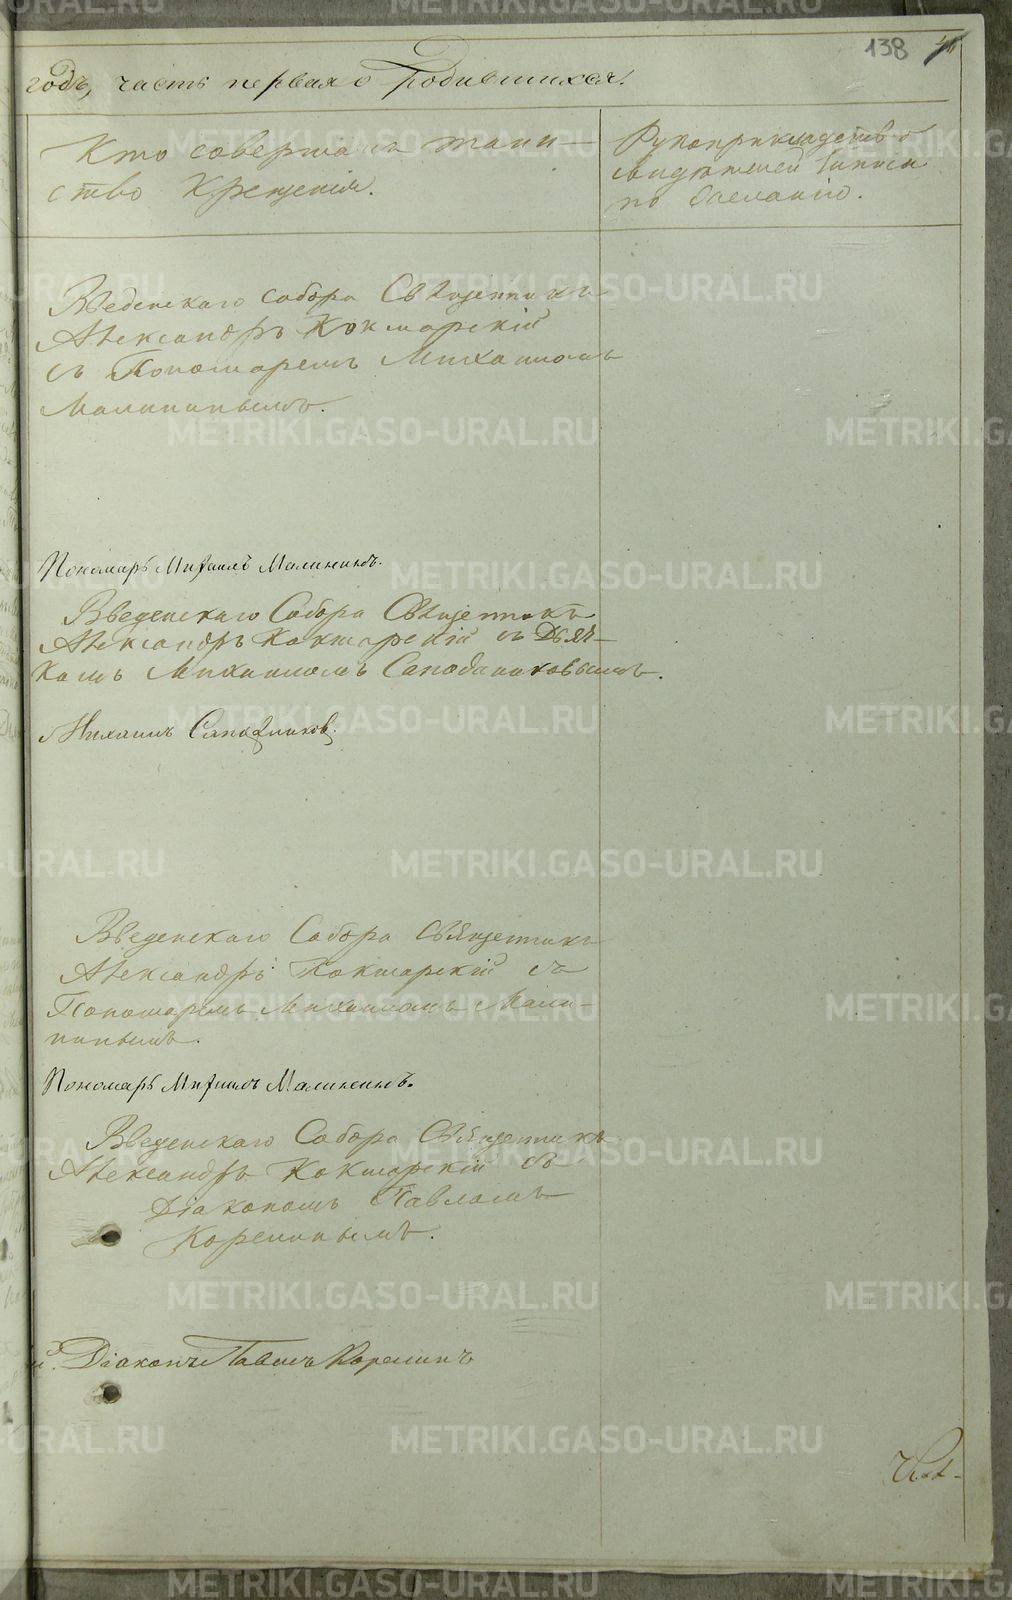 138
годъ, часть первая о Родившихся.
Кто совершалъ таин-
ство Крещенія.
Рукоприкладство
свидѣтелей записи
по желанію.
Введенскаго собора Священникъ
Александръ Кокшарскій
съ Пономаремъ Михаиломъ
Малининымъ.
Пономарь Михаилъ Малининъ.
Введенскаго Собора Священникъ
Александръ Кокшарскій съ Дьяч-
комъ Михаиломъ Сапожниковымъ.
Михаилъ Сапожников.
Введенскаго Собора Священникъ
Александръ Кокшарскій съ
Пономаремъ Михаиломъ Мали-
нинымъ.
Пономарь Михаилъ Малининъ.
Введенскаго Собора Священникъ
Александръ Кокшарскій съ
Діакономъ Павломъ
Корелинымъ.
Діаконъ Павелъ Корелинъ
METRIKI.GASO-URAL.RU